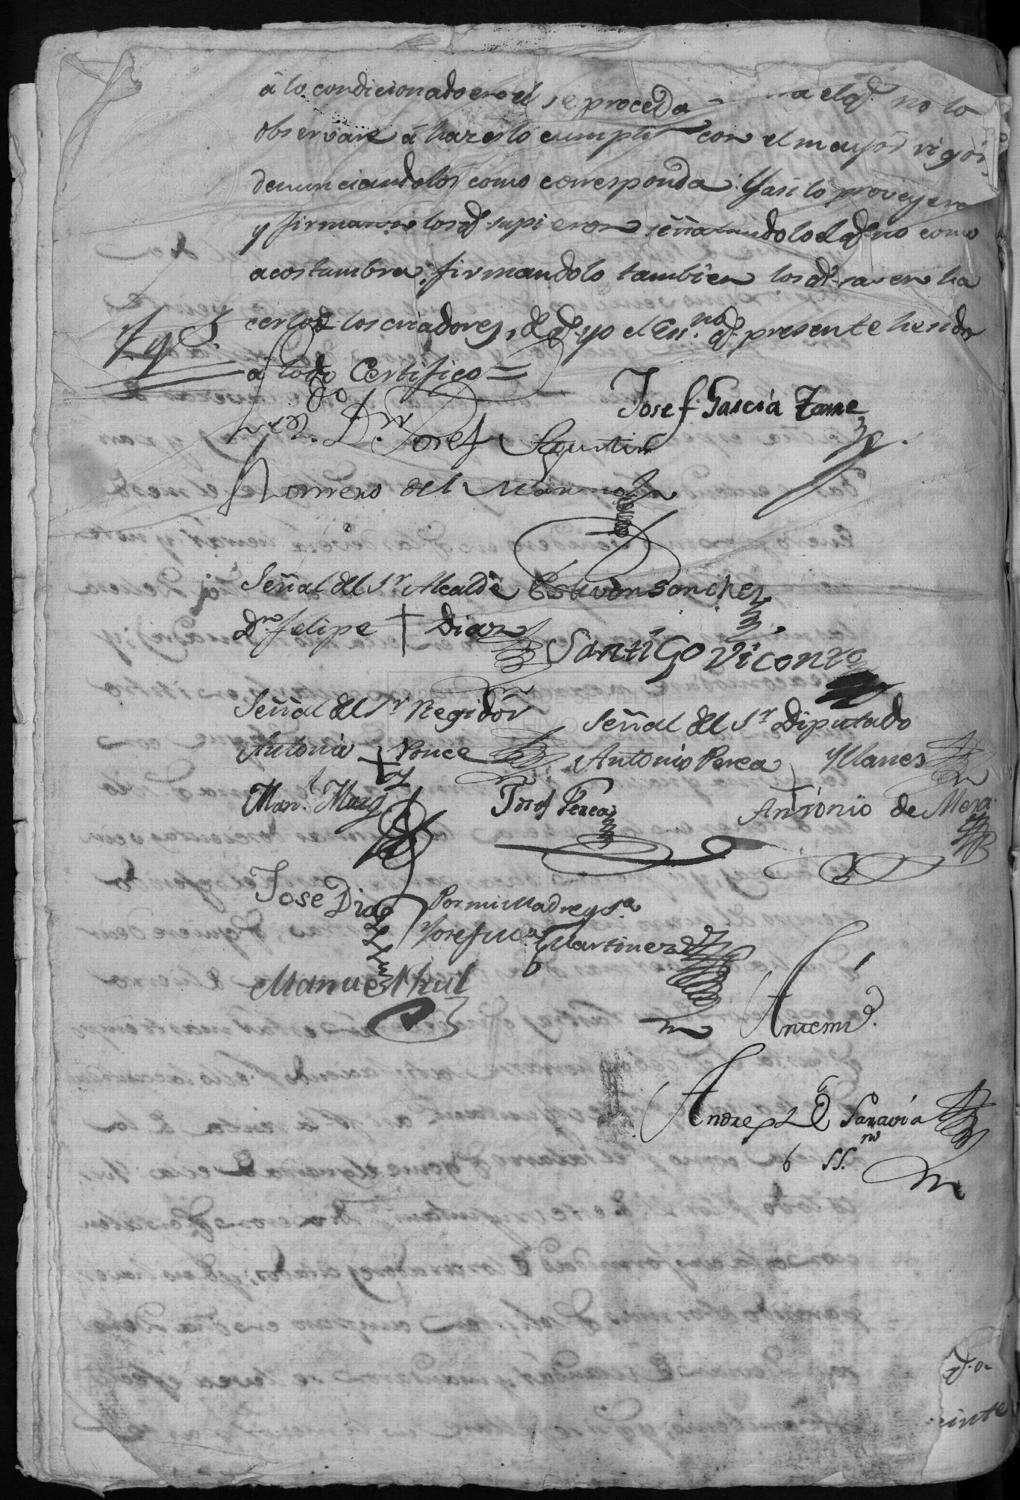 á lo condicionado en el se proceda a el qe. no lo
observare á hazerlo cumplir con el mayor rigor
denunciandolos como corresponda. Y asi lo proveyeron
y firmaron los qe. supieron señalandolo el qe. no como
acostumbra: firmandolo tambien los qe. saven ha
cerlo de los criadores, de qe. yo el Essno. qe. presente he sido
á todo Certifico =
Ldo. Dn. Josef Agustin
Josef Garcia Zame
Romero del Marmol
Señal del Sr. Alcalde Estevan Sanchez
Dn. Felipe + Diaz
Santigo Vicente
Señal del Sr. Regidor
Señal del Sr. Diputado
Antonio + Ponce
Antonio Perea + Yllanes
Man.l
Josef Perea
Antonio de Mera
Jose Diaz
Por mi Madre qe.
Josef Ma. Martinez
Manue
Antemi
Andres Saravia
SS.no